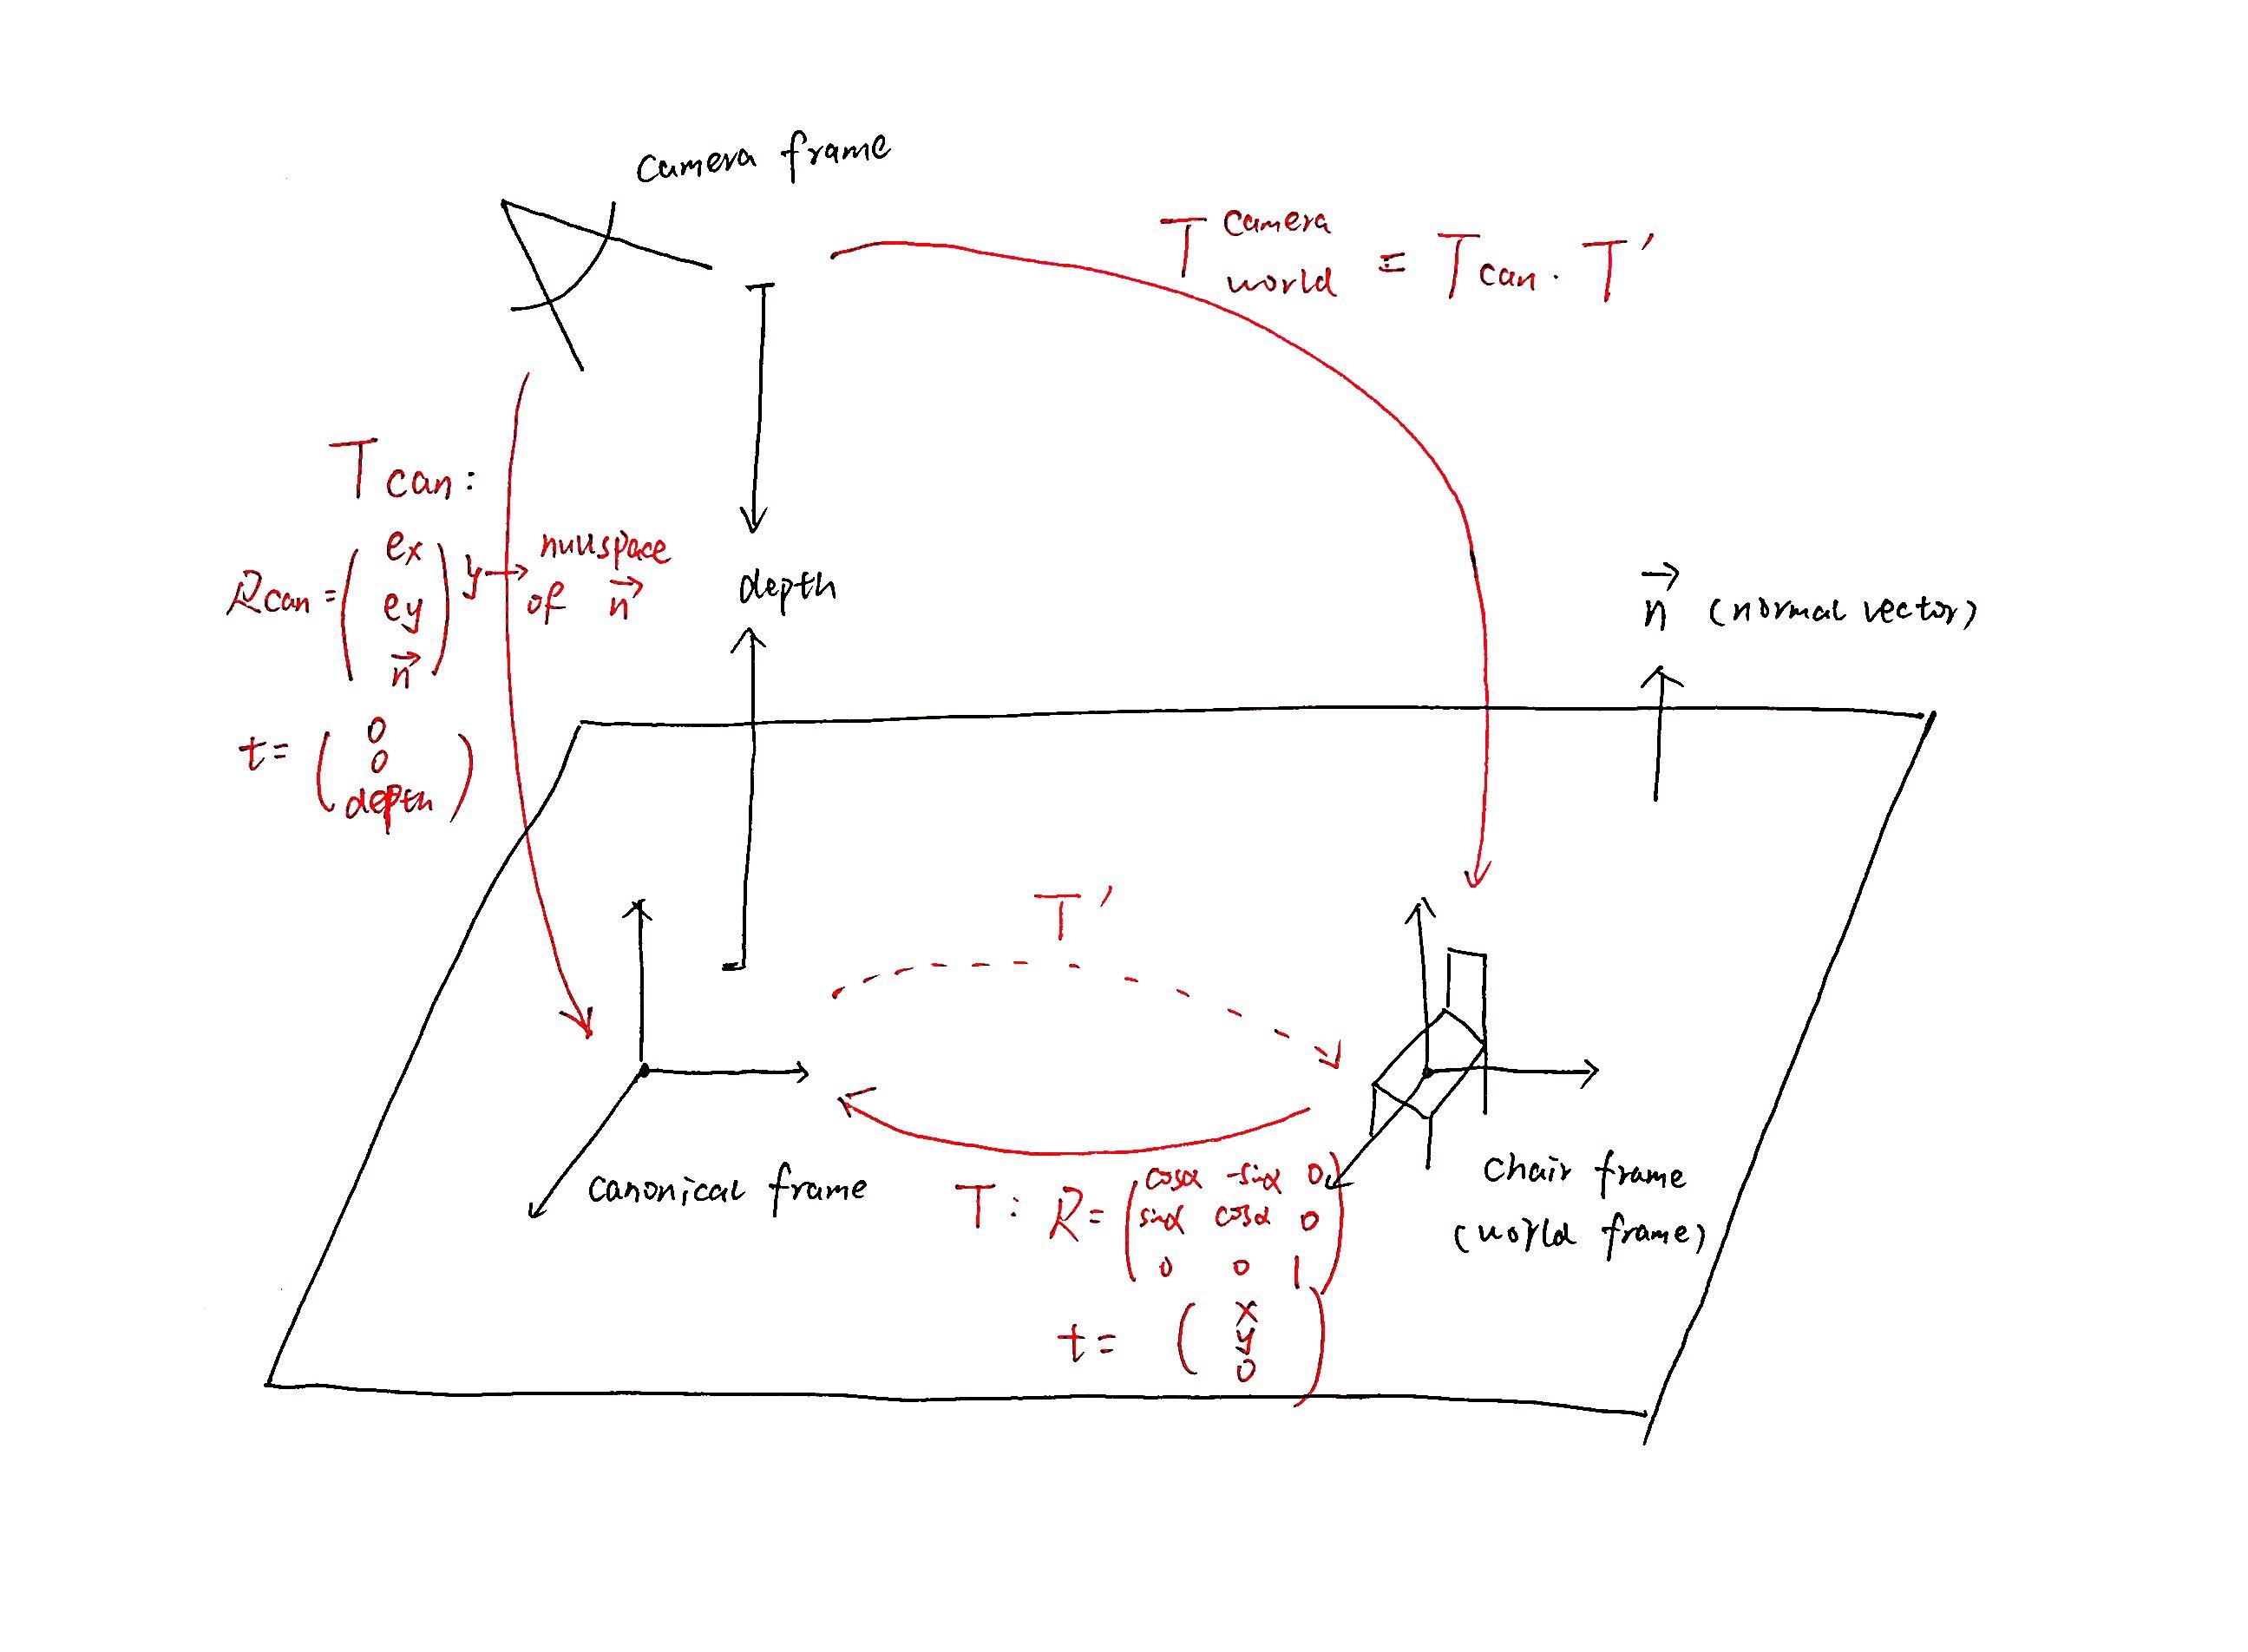 camera frame
T camera world = Tcan · T'
Tcan:
Rcan = ( ex ey n⃗ ) } → nullspace of n⃗
t = ( 0 0 depth )
depth
n⃗ (normal vector)
T'
canonical frame
T: R = ( cosα -sinα 0
sinα cosα 0
0 0 1 )
t = ( x y 0 )
chair frame
(world frame)